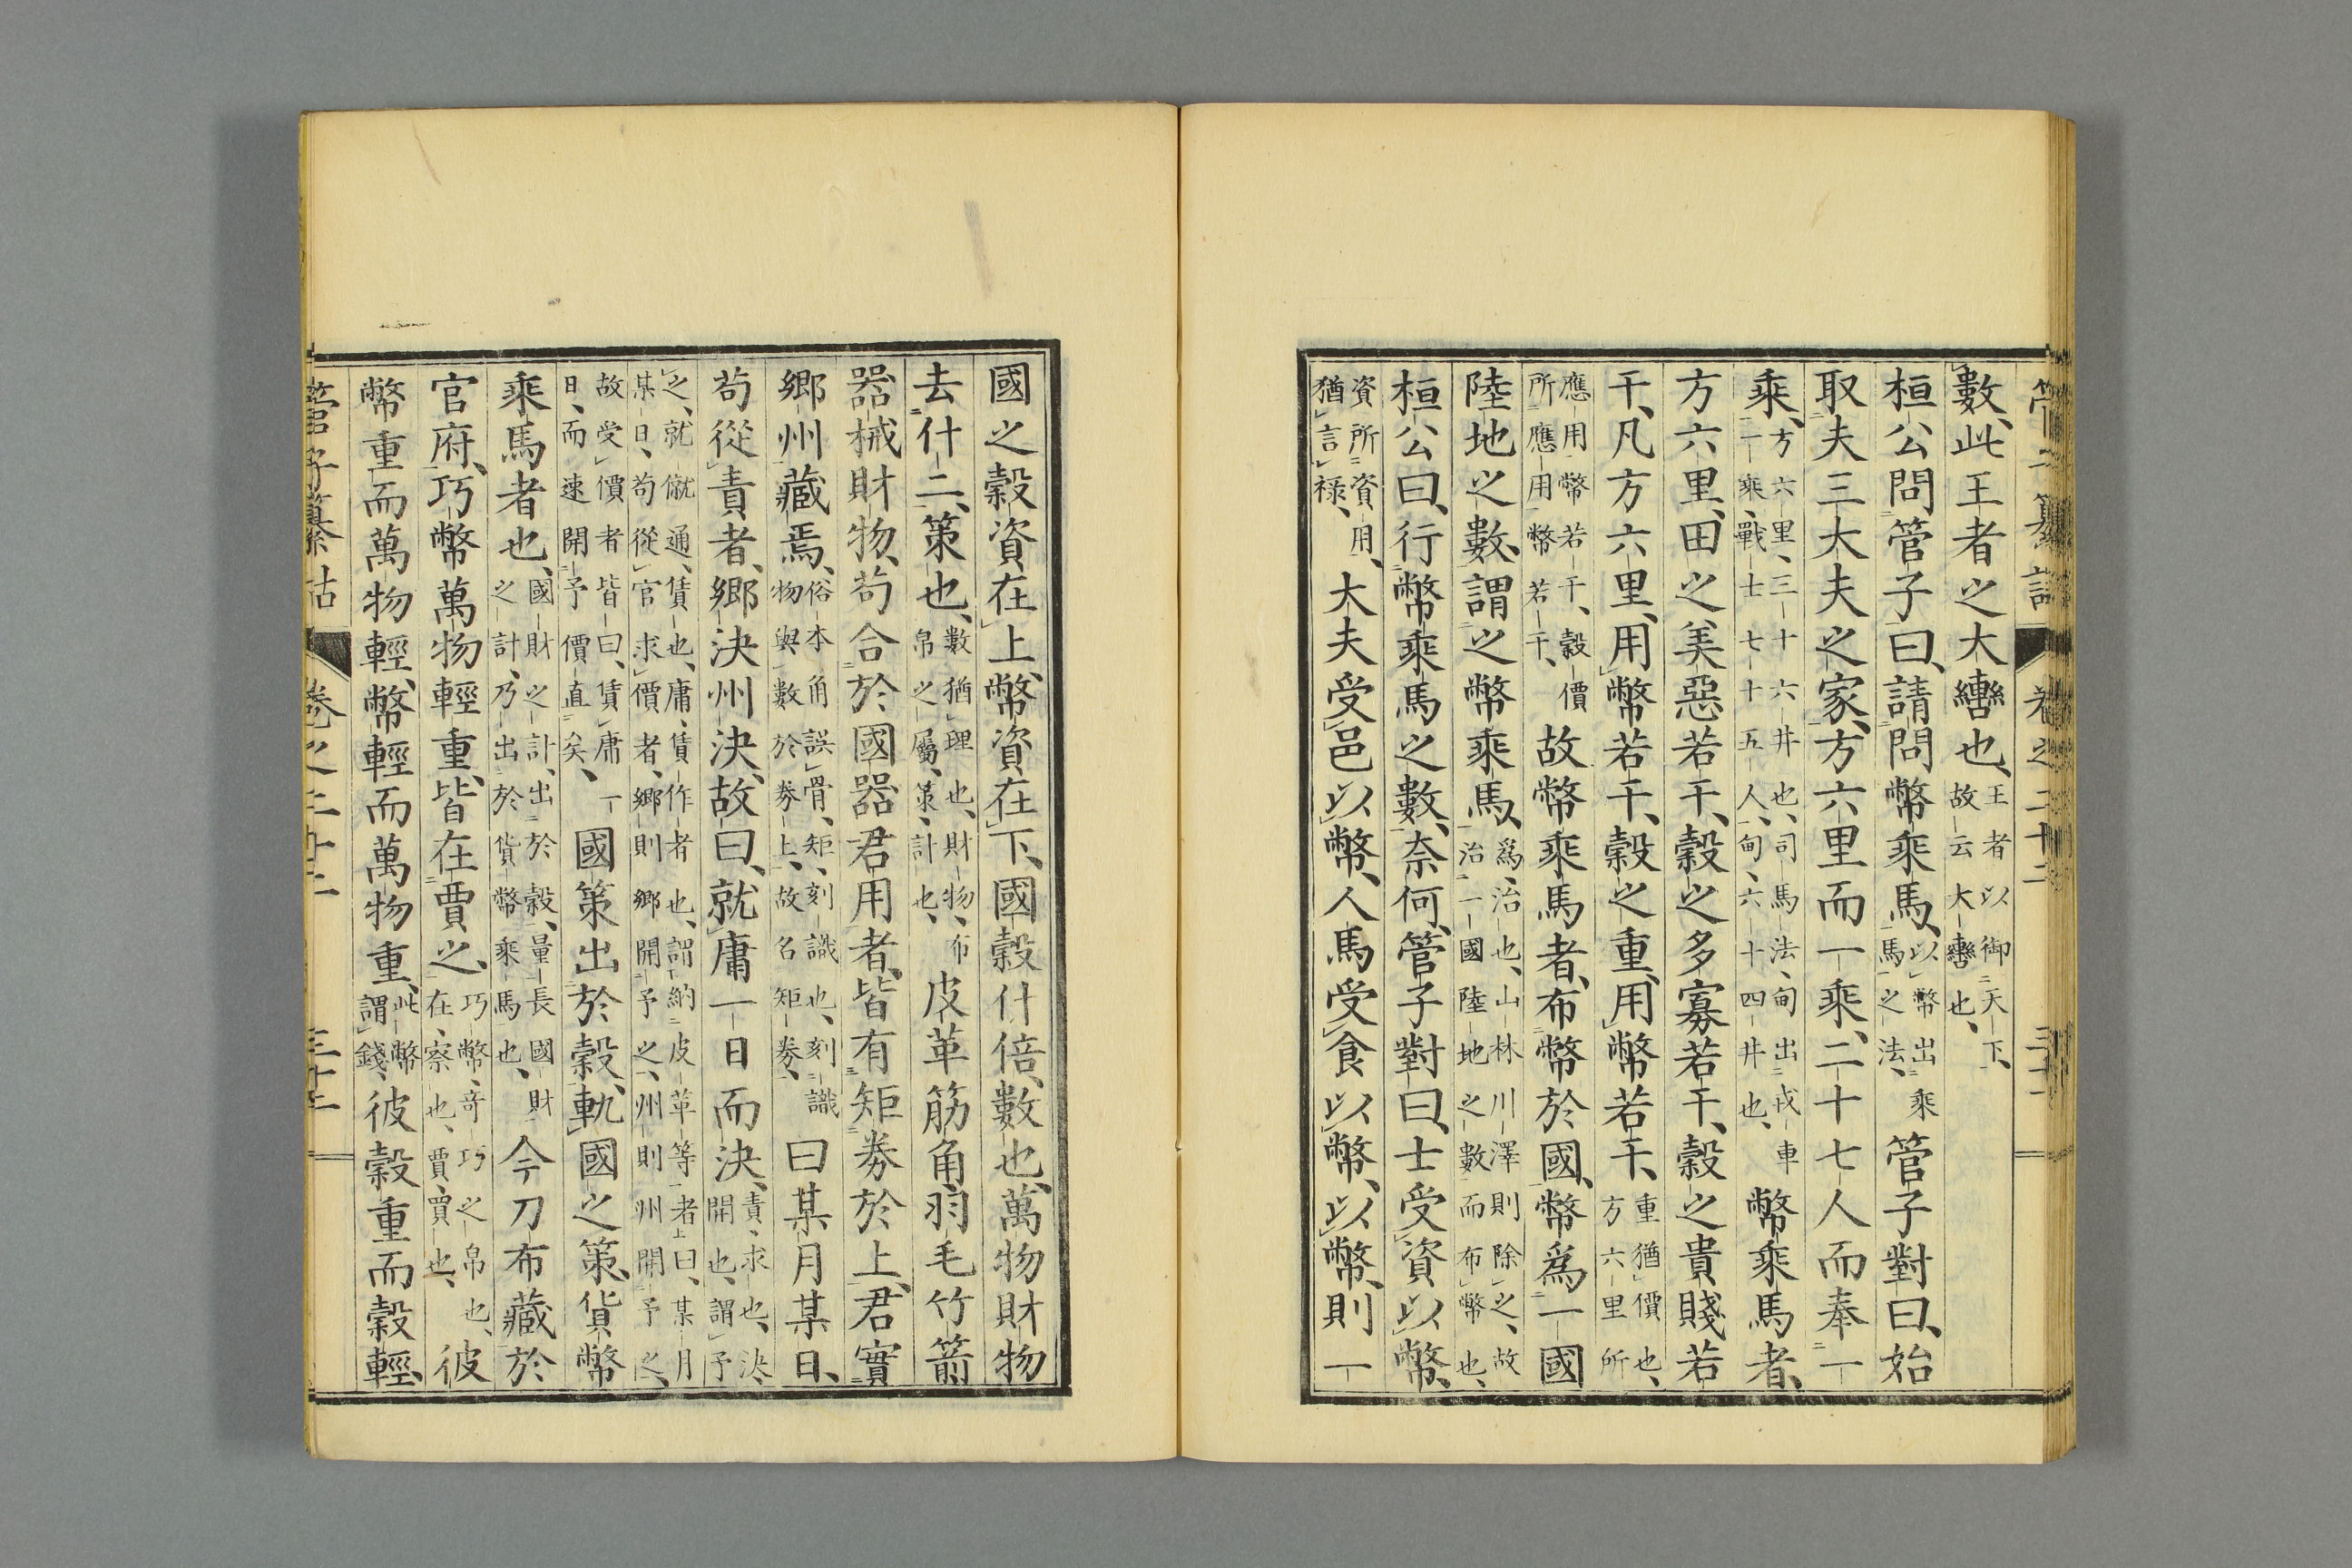 數、此王者之大轡也、王者以御天下、故云大轡也、
桓公問管子曰、請問幣乘馬、以幣出乘馬之法、管子對曰、始
取夫三大夫之家、方六里而一乘、二十七人而奉一
乘、方六里、三十六井也、司馬法、甸出戎車一乘、戰士七十五人、甸、六十四井也、幣乘馬者、
方六里、田之美惡若干、穀之多寡若干、穀之貴賤若
干、凡方六里、用幣若干、穀之重、用幣若干、重猶價也、方六里所
應用幣若干、穀價所應用幣若干、故幣乘馬者、布幣於國、幣爲一國
陸地之數、謂之幣乘馬、爲、治也、山林川澤則除之、故治一國陸地之數而布幣也、
桓公曰、行幣乘馬之數、奈何、管子對曰、士受資以幣、
資所資用、猶言祿、大夫受邑以幣、人馬受食以幣、以幣、則一
國之穀資在上、幣資在下、國穀什倍、數也、萬物財物
去什二、策也、數猶理也、財物、布帛之屬、策、計也、皮革筋角、羽毛竹箭
器械財物、苟合於國器君用者、皆有矩券於上、君實
鄉州藏焉、俗本角誤骨、矩、刻識也、刻識物與數於券上、故名矩券、曰某月某日、
苟從責者、鄉決州決、故曰、就庸一日而決、責、求也、決、開也、謂予
之、就僦通、賃也、庸、賃作者也、謂納皮革等者曰、某月某日、苟從官求價者、鄉則鄉開予之、州則州開予之、
故受價者皆曰、賃庸一日、而速開予價直矣、國策出於穀、軌國之策、貨幣
乘馬者也、國財之計、出於穀、量長國財之計、乃出於貨幣乘馬也、今刀布藏於
官府、巧幣萬物輕重、皆在賈之、巧幣、奇巧之帛也、在、察也、賈、買也、彼
幣重而萬物輕、幣輕而萬物重、此幣謂錢、彼穀重而穀輕、
管子纂詁 卷之二十二 三十二